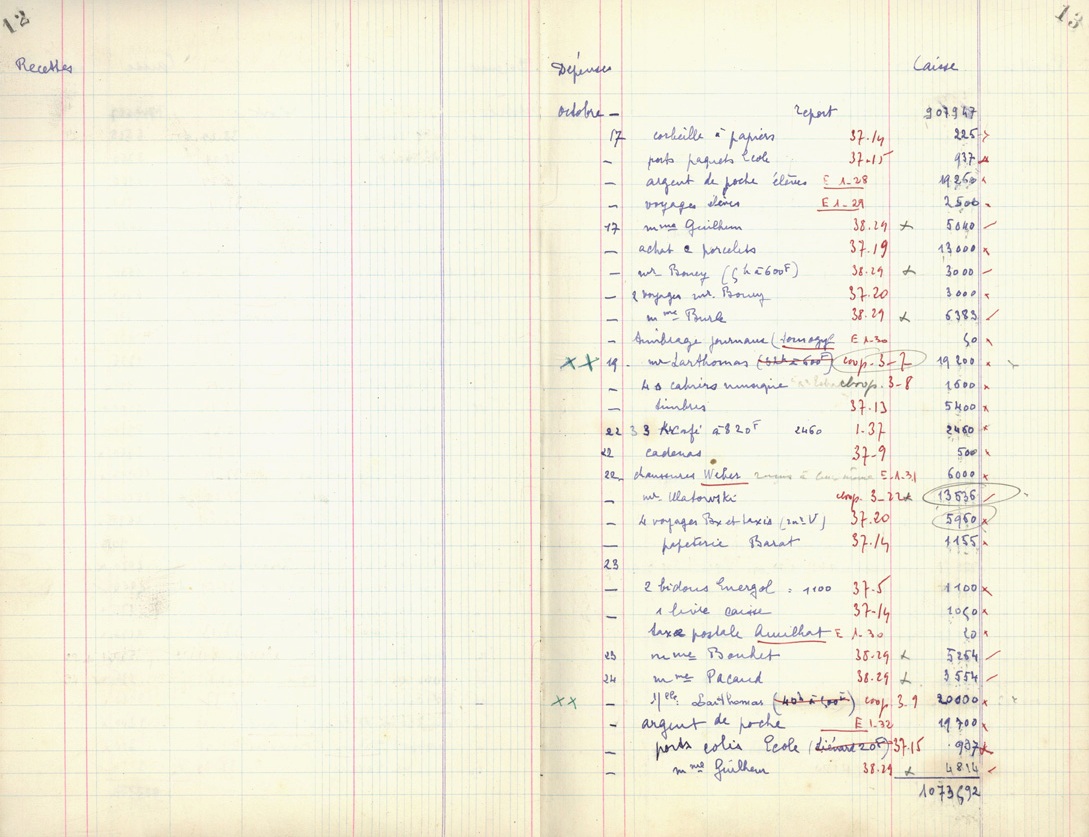 12
13
Recettes
Dépenses Caisse
octobre — report 907947
17 corbeille à papiers 37.14 225
— ports paquets Ecole 37.15 937
— argent de poche élèves E 1-28 19250
— voyages élèves E 1-29 2500
17 mme Guilhem 38.29 x 5040
— achat porcelets 37.19 13000
— mr Boney (5h à 600F) 38.29 x 3000
— 2 voyages mr. Boney 37.20 3000
— mme Burle 38.29 x 6383
— timbrage journaux E 1.30 50
xx 19 mr Larthomas (32h à 600F) coop. 3-7 19200
— 40 cahiers musique coop. 3-8 1600
— timbres 37.13 5400
22 3 K café à 820F 2460 1.37 2460
22 cadenas 37-9 500
22 chaussures Weber E.1.31 6000
— mr. Ulatowski coop. 3-22 x 13536
— 4 voyages Bx et taxis 37.20 5950
— papeterie Barat 37.14 1155
23
— 2 bidons Energol = 1100 37.5 1100
— 1 livre caisse 37-14 1050
— taxe postale Amilhat E 1.30 20
23 mme Bouhet 38.29 x 5254
24 mme Pacaud 38.29 x 3554
xx — Larthomas coop 3.9 20000
— argent de poche E 1-32 19700
— ports colis Ecole 37.15 937
— mme Guilhem 38.29 x 4814
1073592